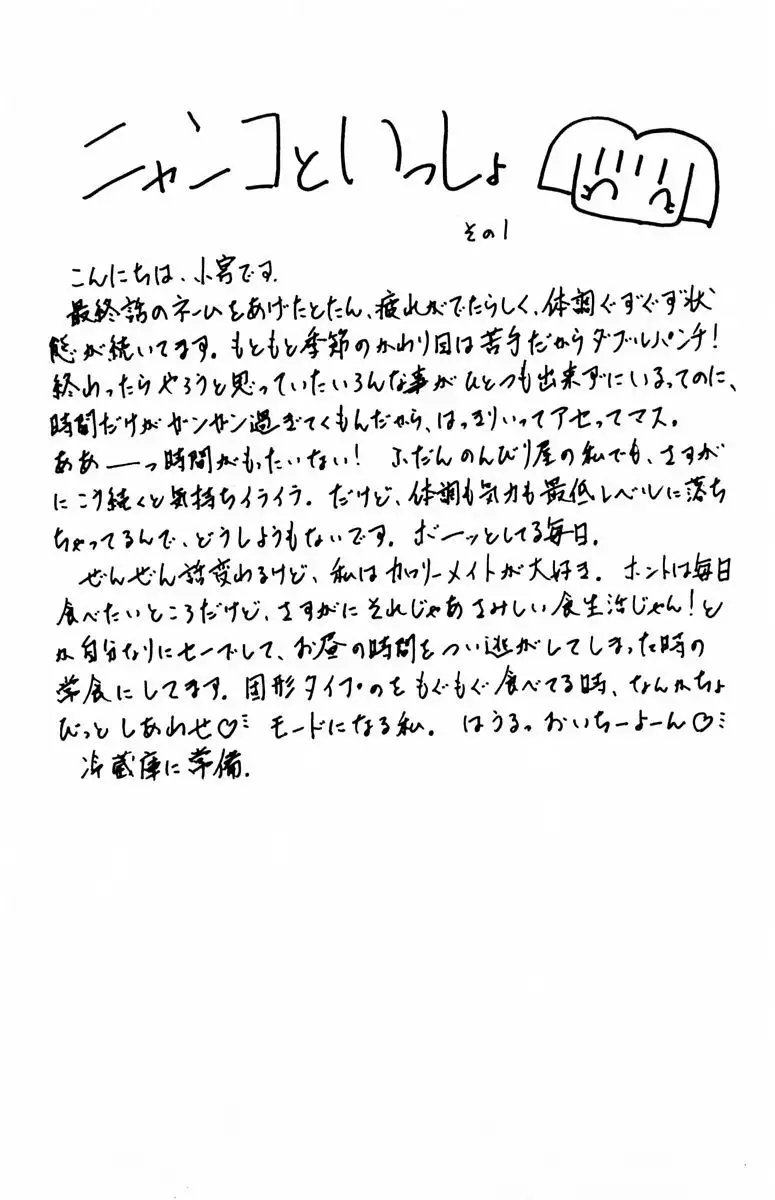 ニャンコといっしょ
その1
こんにちは、小宮です。
最終話のネームをあげたとたん、疲れがでたらしく、体調ぐずぐず状
態が続いてます。もともと季節のかわり目は苦手だからダブルパンチ!
終わったらやろうと思っていたいろんな事がひとつも出来ずにいるってのに、
時間だけがガンガン過ぎてくもんだから、はっきりいってアセってマス。
ああーーっ時間がもったいない! ふだんのんびり屋の私でも、さすが
にこう続くと気持ちイライラ。だけど、体調も気力も最低レベルに落ち
ちゃってるんで、どうしようもないです。ボーッとしてる毎日。
ぜんぜん話変わるけど、私はカロリーメイトが大好き。ホントは毎日
食べたいところだけど、さすがにそれじゃあさみしい食生活じゃん!と
か自分なりにセーブして、お昼の時間をつい逃がしてしまった時の
常食にしてます。固形タイプのをもぐもぐ食べてる時、なんかちょ
びっとしあわせ♡モードになる私。はうるっおいちーよーん♡
冷蔵庫に常備。